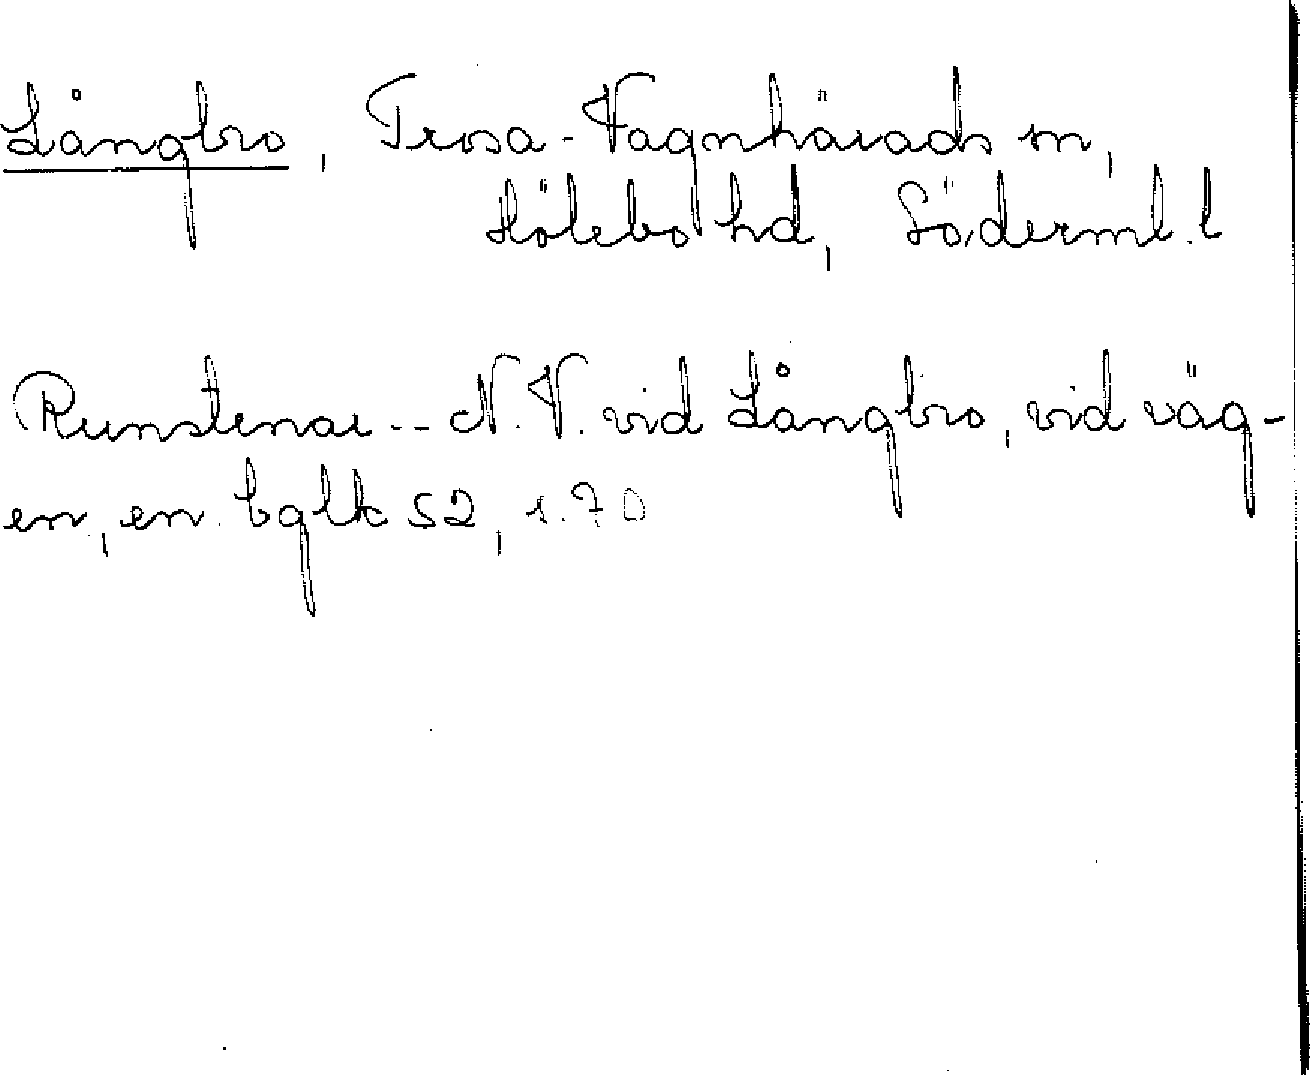 Långbro, Trosa-Vagnhärads sn,
Hölebo hd, Söderml. l
Runstenar -- N.V. vid Långbro, vid väg-
en, en. bglk 52, s. 70